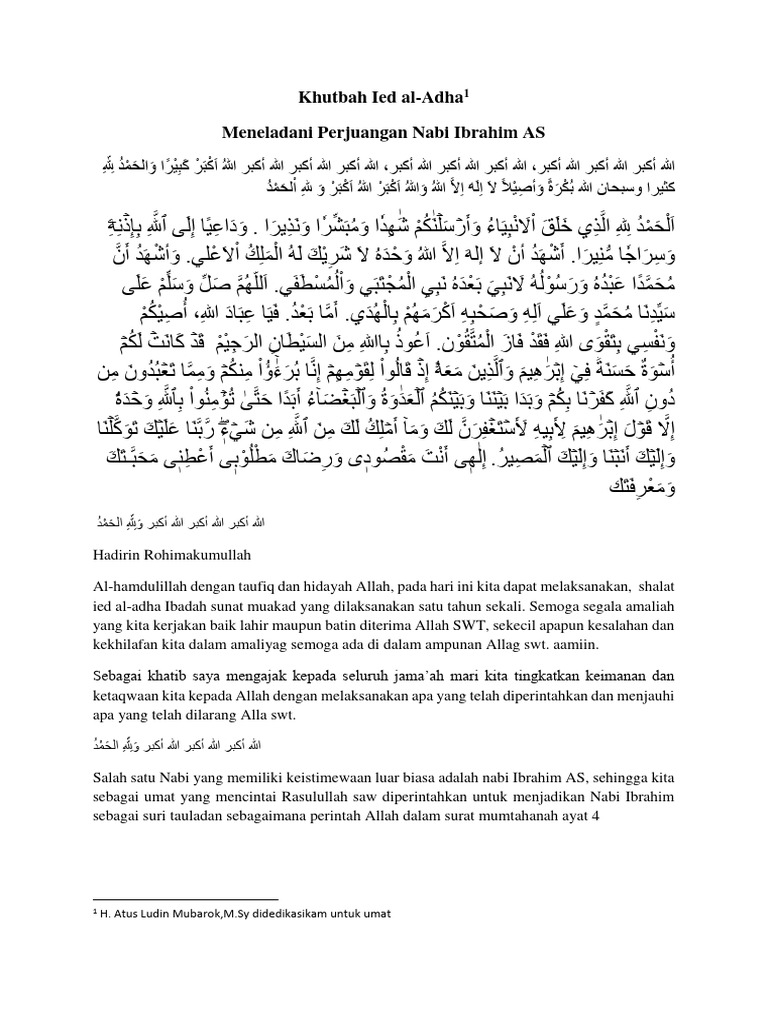 Khutbah Ied al-Adha¹
Meneladani Perjuangan Nabi Ibrahim AS
الله أكبر الله أكبر الله أكبر، الله أكبر الله أكبر الله أكبر، الله أكبر الله أكبر الله أكبر اللهُ اَكْبَرْ كَبِيْرًا وَالحَمْدُ لِلّهِ
كثيرا وسبحان الله بُكْرَةً وَأصِيْلاً لاَ اِلهَ اِلاَّ اللهُ وَاللهُ اَكْبَرْ اللهُ اَكْبَرْ وَ للهِ اْلحَمْدُ
اَلْحَمْدُ لِلهِ الَّذِي خَلَقَ اْلاَنْبِيَاءُ وَأَرۡسَلۡنَٰكُمْ شَٰهِدٗا وَمُبَشِّرٗا وَنَذِيرَا . وَدَاعِيًا إِلَى ٱللَّهِ بِإِذۡنِهِۦ
وَسِرَاجًا مُّنِيرَا. أَشْهَدُ أنْ لاَ إلهَ اِلاَّ اللهُ وَحْدَهُ لاَ شَرِيْكَ لَهُ الْمَلِكُ اْلاَعْلي. وَأشْهَدُ أَنَّ
مُحَمَّدًا عَبْدُهُ وَرَسُوْلُهُ لَانَبِيَ بَعْدَهُ نَبِي الْمُجْتَبَي وَالْمُسْطَفَي. اَللّهُمَّ صَلِّ وَسَلِّمْ عَلَى
سَيِّدِنَا مُحَمَّدٍ وَعَلَي آلِهِ وَصَحْبِهِ اَكْرَمَهُمْ بِالْهُدَي. أَمَّا بَعْدُ. فَيَا عِبَادَ اللهِ، أُصِيْكُمْ
وَنَفْسِي بِتَقْوَى اللهِ فَقَدْ فَازَ الْمُتَّقُوْن. اَعُوذُ بِااللهِ مِنَ السَيْطَانِ الرَجِيْمْ قَدۡ كَانَتۡ لَكُمۡ
أُسۡوَةٌ حَسَنَةٞ فِيٓ إِبۡرَٰهِيمَ وَٱلَّذِينَ مَعَهُۥٓ إِذۡ قَالُواْ لِقَوۡمِهِمۡ إِنَّا بُرَءَٰٓؤُاْ مِنكُمۡ وَمِمَّا تَعۡبُدُونَ مِن
دُونِ ٱللَّهِ كَفَرۡنَا بِكُمۡ وَبَدَا بَيۡنَنَا وَبَيۡنَكُمُ ٱلۡعَدَٰوَةُ وَٱلۡبَغۡضَآءُ أَبَدًا حَتَّىٰ تُؤۡمِنُواْ بِٱللَّهِ وَحۡدَهُۥٓ
إِلَّا قَوۡلَ إِبۡرَٰهِيمَ لِأَبِيهِ لَأَسۡتَغۡفِرَنَّ لَكَ وَمَآ أَمۡلِكُ لَكَ مِنَ ٱللَّهِ مِن شَيۡءٖۖ رَّبَّنَا عَلَيۡكَ تَوَكَّلۡنَا
وَإِلَيۡكَ أَنَبۡنَا وَإِلَيۡكَ ٱلۡمَصِيرُ. إِلٰهِى أَنْتَ مَقْصُودِى وَرِضَاكَ مَطْلُوْبِى أَعْطِنِى مَحَبَّتَكَ
وَمَعْرِفَتَك
الله أكبر الله أكبر الله أكبر وَلِلّٰهِ الحَمْدُ
Hadirin Rohimakumullah
Al-hamdulillah dengan taufiq dan hidayah Allah, pada hari ini kita dapat melaksanakan, shalat
ied al-adha Ibadah sunat muakad yang dilaksanakan satu tahun sekali. Semoga segala amaliah
yang kita kerjakan baik lahir maupun batin diterima Allah SWT, sekecil apapun kesalahan dan
kekhilafan kita dalam amaliyag semoga ada di dalam ampunan Allag swt. aamiin.
Sebagai khatib saya mengajak kepada seluruh jama’ah mari kita tingkatkan keimanan dan
ketaqwaan kita kepada Allah dengan melaksanakan apa yang telah diperintahkan dan menjauhi
apa yang telah dilarang Alla swt.
الله أكبر الله أكبر الله أكبر وَلِلّٰهِ الحَمْدُ
Salah satu Nabi yang memiliki keistimewaan luar biasa adalah nabi Ibrahim AS, sehingga kita
sebagai umat yang mencintai Rasulullah saw diperintahkan untuk menjadikan Nabi Ibrahim
sebagai suri tauladan sebagaimana perintah Allah dalam surat mumtahanah ayat 4
¹ H. Atus Ludin Mubarok,M.Sy didedikasikam untuk umat